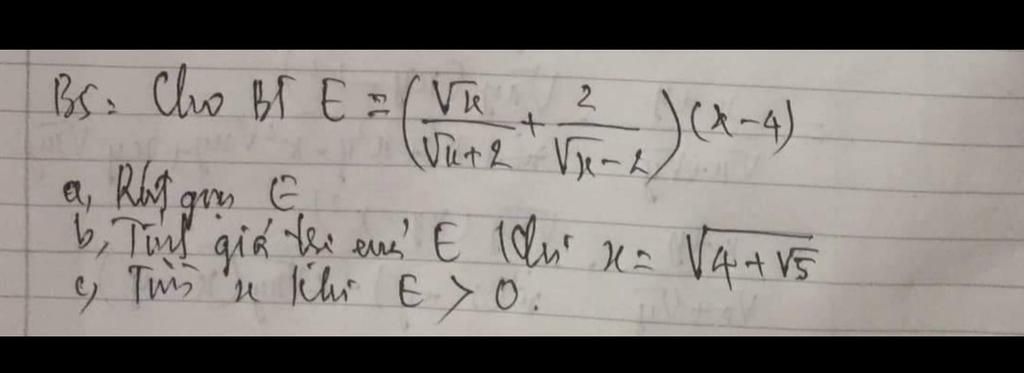 B5: Cho BT E = (√x/(√x+2) + 2/(√x-2))(x-4)
a, Rút gọn E
b, Tính giá trị của E khi x = √(4+√5)
c, Tìm x khi E > 0.